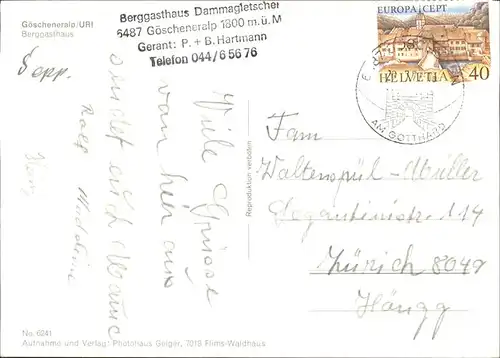 Göscheneralp/URI
Berggasthaus
Berggasthaus Dammagletscher
6487 Göscheneralp 1800 m.ü.M
Gerant: P. + B. Hartmann
Telefon 044/6 56 76
EUROPA CEPT
HELVETIA 40
AM GOTTHARD
Viele Grüsse
von hier aus
sendet euch
Sepp.
Reproduktion verboten
Fam
Waltenspül-Müller
114
Zürich 8049
Höngg
No. 6241
Aufnahme und Verlag: Photohaus Geiger, 7018 Flims-Waldhaus